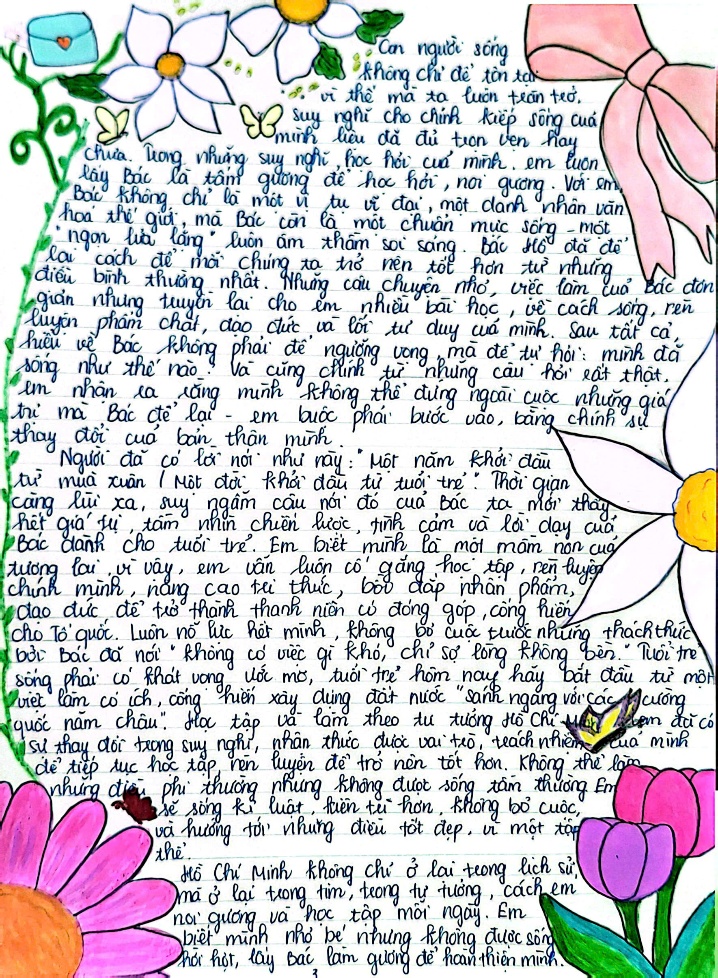 Con người sống
không chỉ để tồn tại
vì thế mà ta luôn trăn trở,
suy nghĩ cho chính kiếp sống của
mình liệu đã đủ trọn vẹn hay
chưa. Trong những suy nghĩ, học hỏi của mình, em luôn
lấy Bác là tấm gương để học hỏi, noi gương. Với em,
Bác không chỉ là một vị tu vĩ đại, một danh nhân văn
hoá thế giới, mà Bác còn là một chuẩn mực sống - một
"ngọn lửa lặng" luôn âm thầm soi sáng. Bác Hồ đã để
lại cách để mỗi chúng ta trở nên tốt hơn từ những
điều bình thường nhất. Những câu chuyện nhỏ, việc làm của Bác đơn
giản nhưng truyền lại cho em nhiều bài học, về cách sống, rèn
luyện phẩm chất, đạo đức và lối tư duy của mình. Sau tất cả,
hiểu về Bác không phải để ngưỡng vọng, mà để tự hỏi: mình đã
sống như thế nào. Và cũng chính từ những câu hỏi rất thật,
em nhận ra rằng mình không thể đứng ngoài cuộc những giá
trị mà Bác để lại - em buộc phải bước vào, bằng chính sự
thay đổi của bản thân mình.
Người đã có lời nói như này: "Một năm khởi đầu
từ mùa xuân / Một đời khởi đầu từ tuổi trẻ". Thời gian
càng lùi xa, suy ngẫm câu nói đó của Bác ta mới thấy
hết giá trị, tầm nhìn chiến lược, tình cảm và lời dạy của
Bác dành cho tuổi trẻ. Em biết mình là một mầm non của
tương lai, vì vậy, em vẫn luôn cố gắng học tập, rèn luyện
chính mình, nâng cao tri thức, bồi đắp nhân phẩm,
đạo đức để trở thành thanh niên có đóng góp, cống hiến
cho Tổ quốc. Luôn nỗ lực hết mình, không bỏ cuộc trước những thách thức
bởi Bác đã nói "không có việc gì khó, chỉ sợ lòng không bền." Tuổi trẻ
sống phải có khát vọng. Ước mơ, tuổi trẻ hôm nay hãy bắt đầu từ một
việc làm có ích, cống hiến xây dựng đất nước "sánh ngang với các cường
quốc năm châu". Học tập và làm theo tư tưởng Hồ Chí em đã có
sự thay đổi trong suy nghĩ, nhận thức được vai trò, trách nhiệm của mình
để tiếp tục học tập, rèn luyện để trở nên tốt hơn. Không thể làm
những điều phi thường nhưng không được sống tầm thường Em
sẽ sống kỉ luật, kiên trì hơn, không bỏ cuộc,
và hướng tới những điều tốt đẹp, vì một tập
thể.
Hồ Chí Minh không chỉ ở lại trong lịch sử,
mà ở lại trong tim, trong tư tưởng, cách em
noi gương và học tập mỗi ngày. Em
biết mình nhỏ bé nhưng không được sống
hời hợt, lấy Bác làm gương để hoàn thiện mình.
3